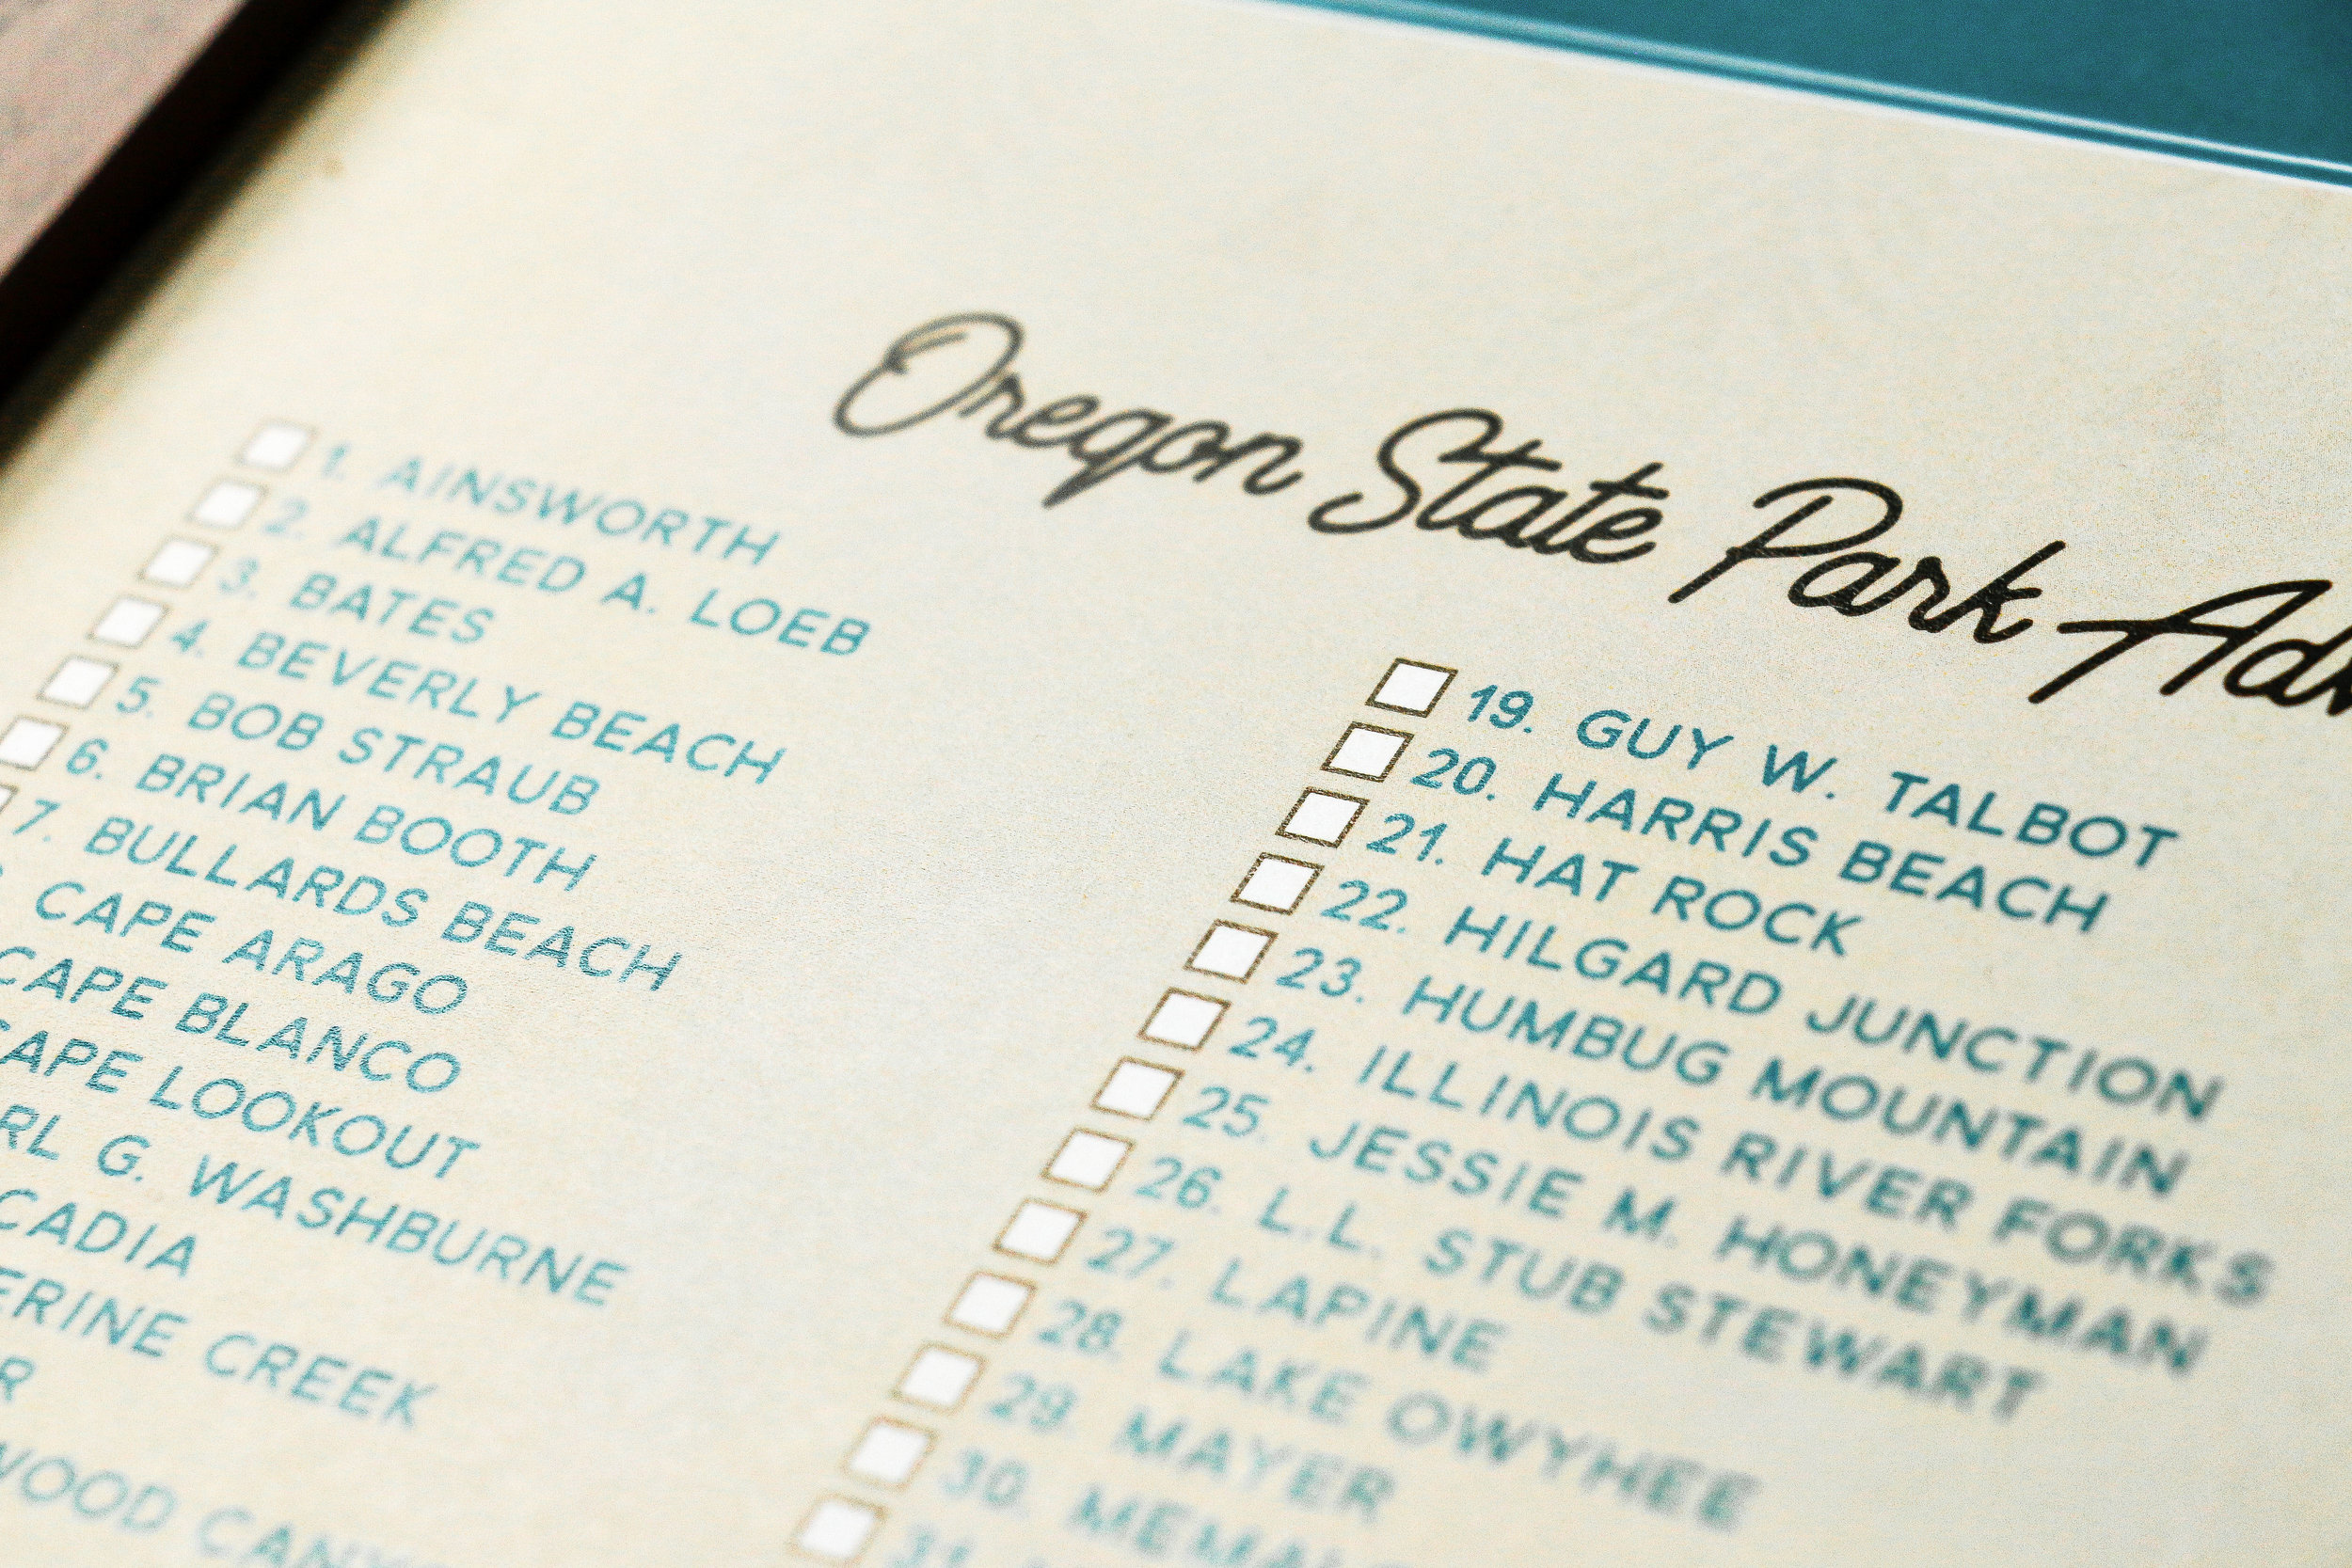 Oregon State Park Adv
1. AINSWORTH
2. ALFRED A. LOEB
3. BATES
4. BEVERLY BEACH
5. BOB STRAUB
6. BRIAN BOOTH
7. BULLARDS BEACH
CAPE ARAGO
CAPE BLANCO
APE LOOKOUT
RL G. WASHBURNE
CADIA
ERINE CREEK
R
WOOD CANY
19. GUY W. TALBOT
20. HARRIS BEACH
21. HAT ROCK
22. HILGARD JUNCTION
23. HUMBUG MOUNTAIN
24. ILLINOIS RIVER FORKS
25. JESSIE M. HONEYMAN
26. L.L. STUB STEWART
27. LAPINE
28. LAKE OWYHEE
29. MAYER
30. MEMAL
31.